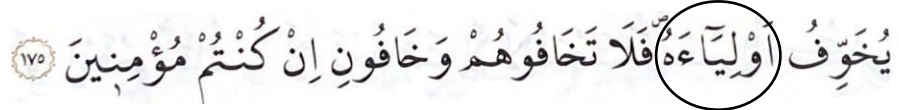 يُخَوِّفُ اَوْلِيَٓاءَهُۖ فَلَا تَخَافُوهُمْ وَخَافُونِ اِنْ كُنْتُمْ مُؤْمِن۪ينَ ﴿١٧٥﴾